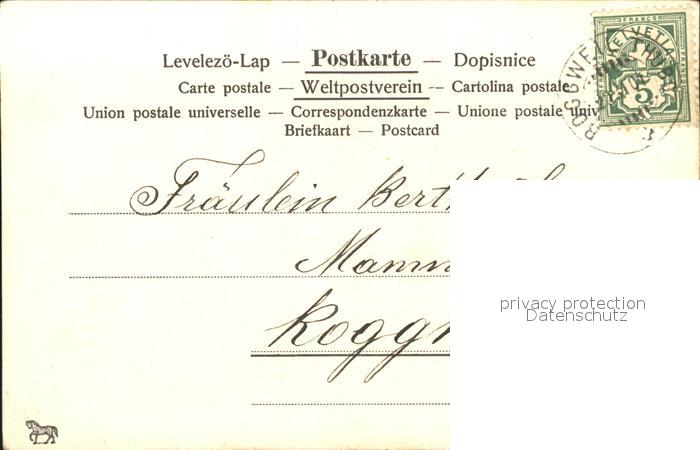 Levelező-Lap — Postkarte — Dopisnice
Carte postale — Weltpostverein — Cartolina postale
Union postale universelle — Correspondenzkarte — Unione postale
Briefkaart — Postcard
FRANCO
HELVETIA
5
Fräulein
privacy protection
Datenschutz